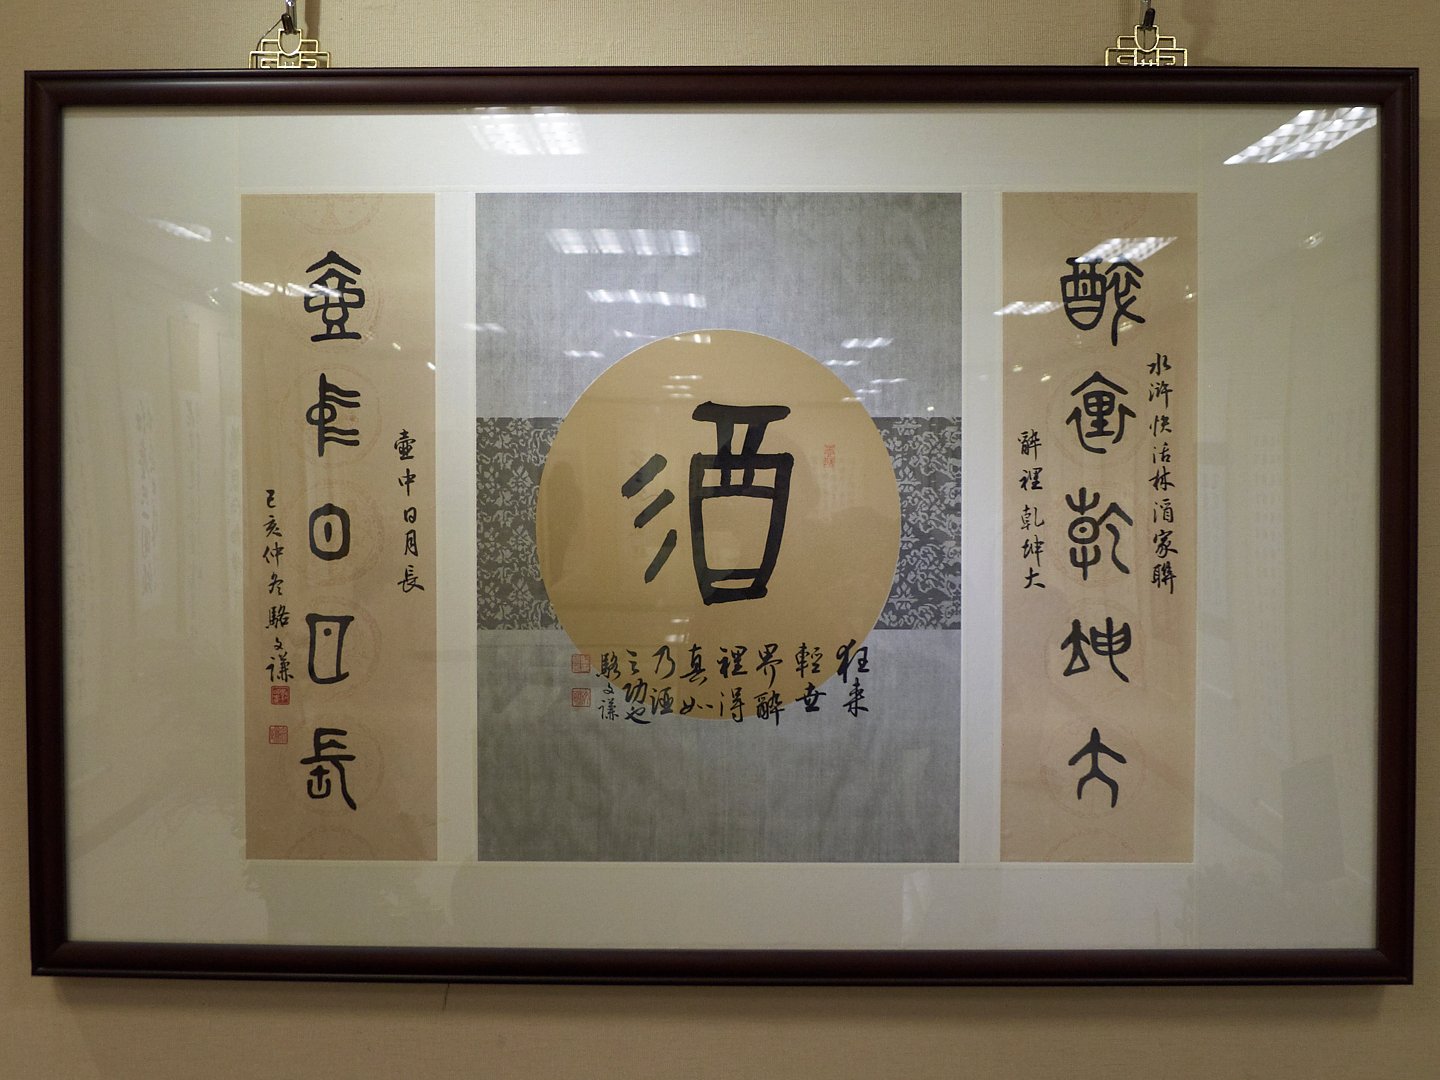 水滸快活林酒家聯
醉裏乾坤大
醉裡乾坤大
酒
狂來
輕世
界醉
裡得
真如
乃酒
之功也
駱文謙
壺中日月長
壺中日月長
己亥仲冬駱文謙